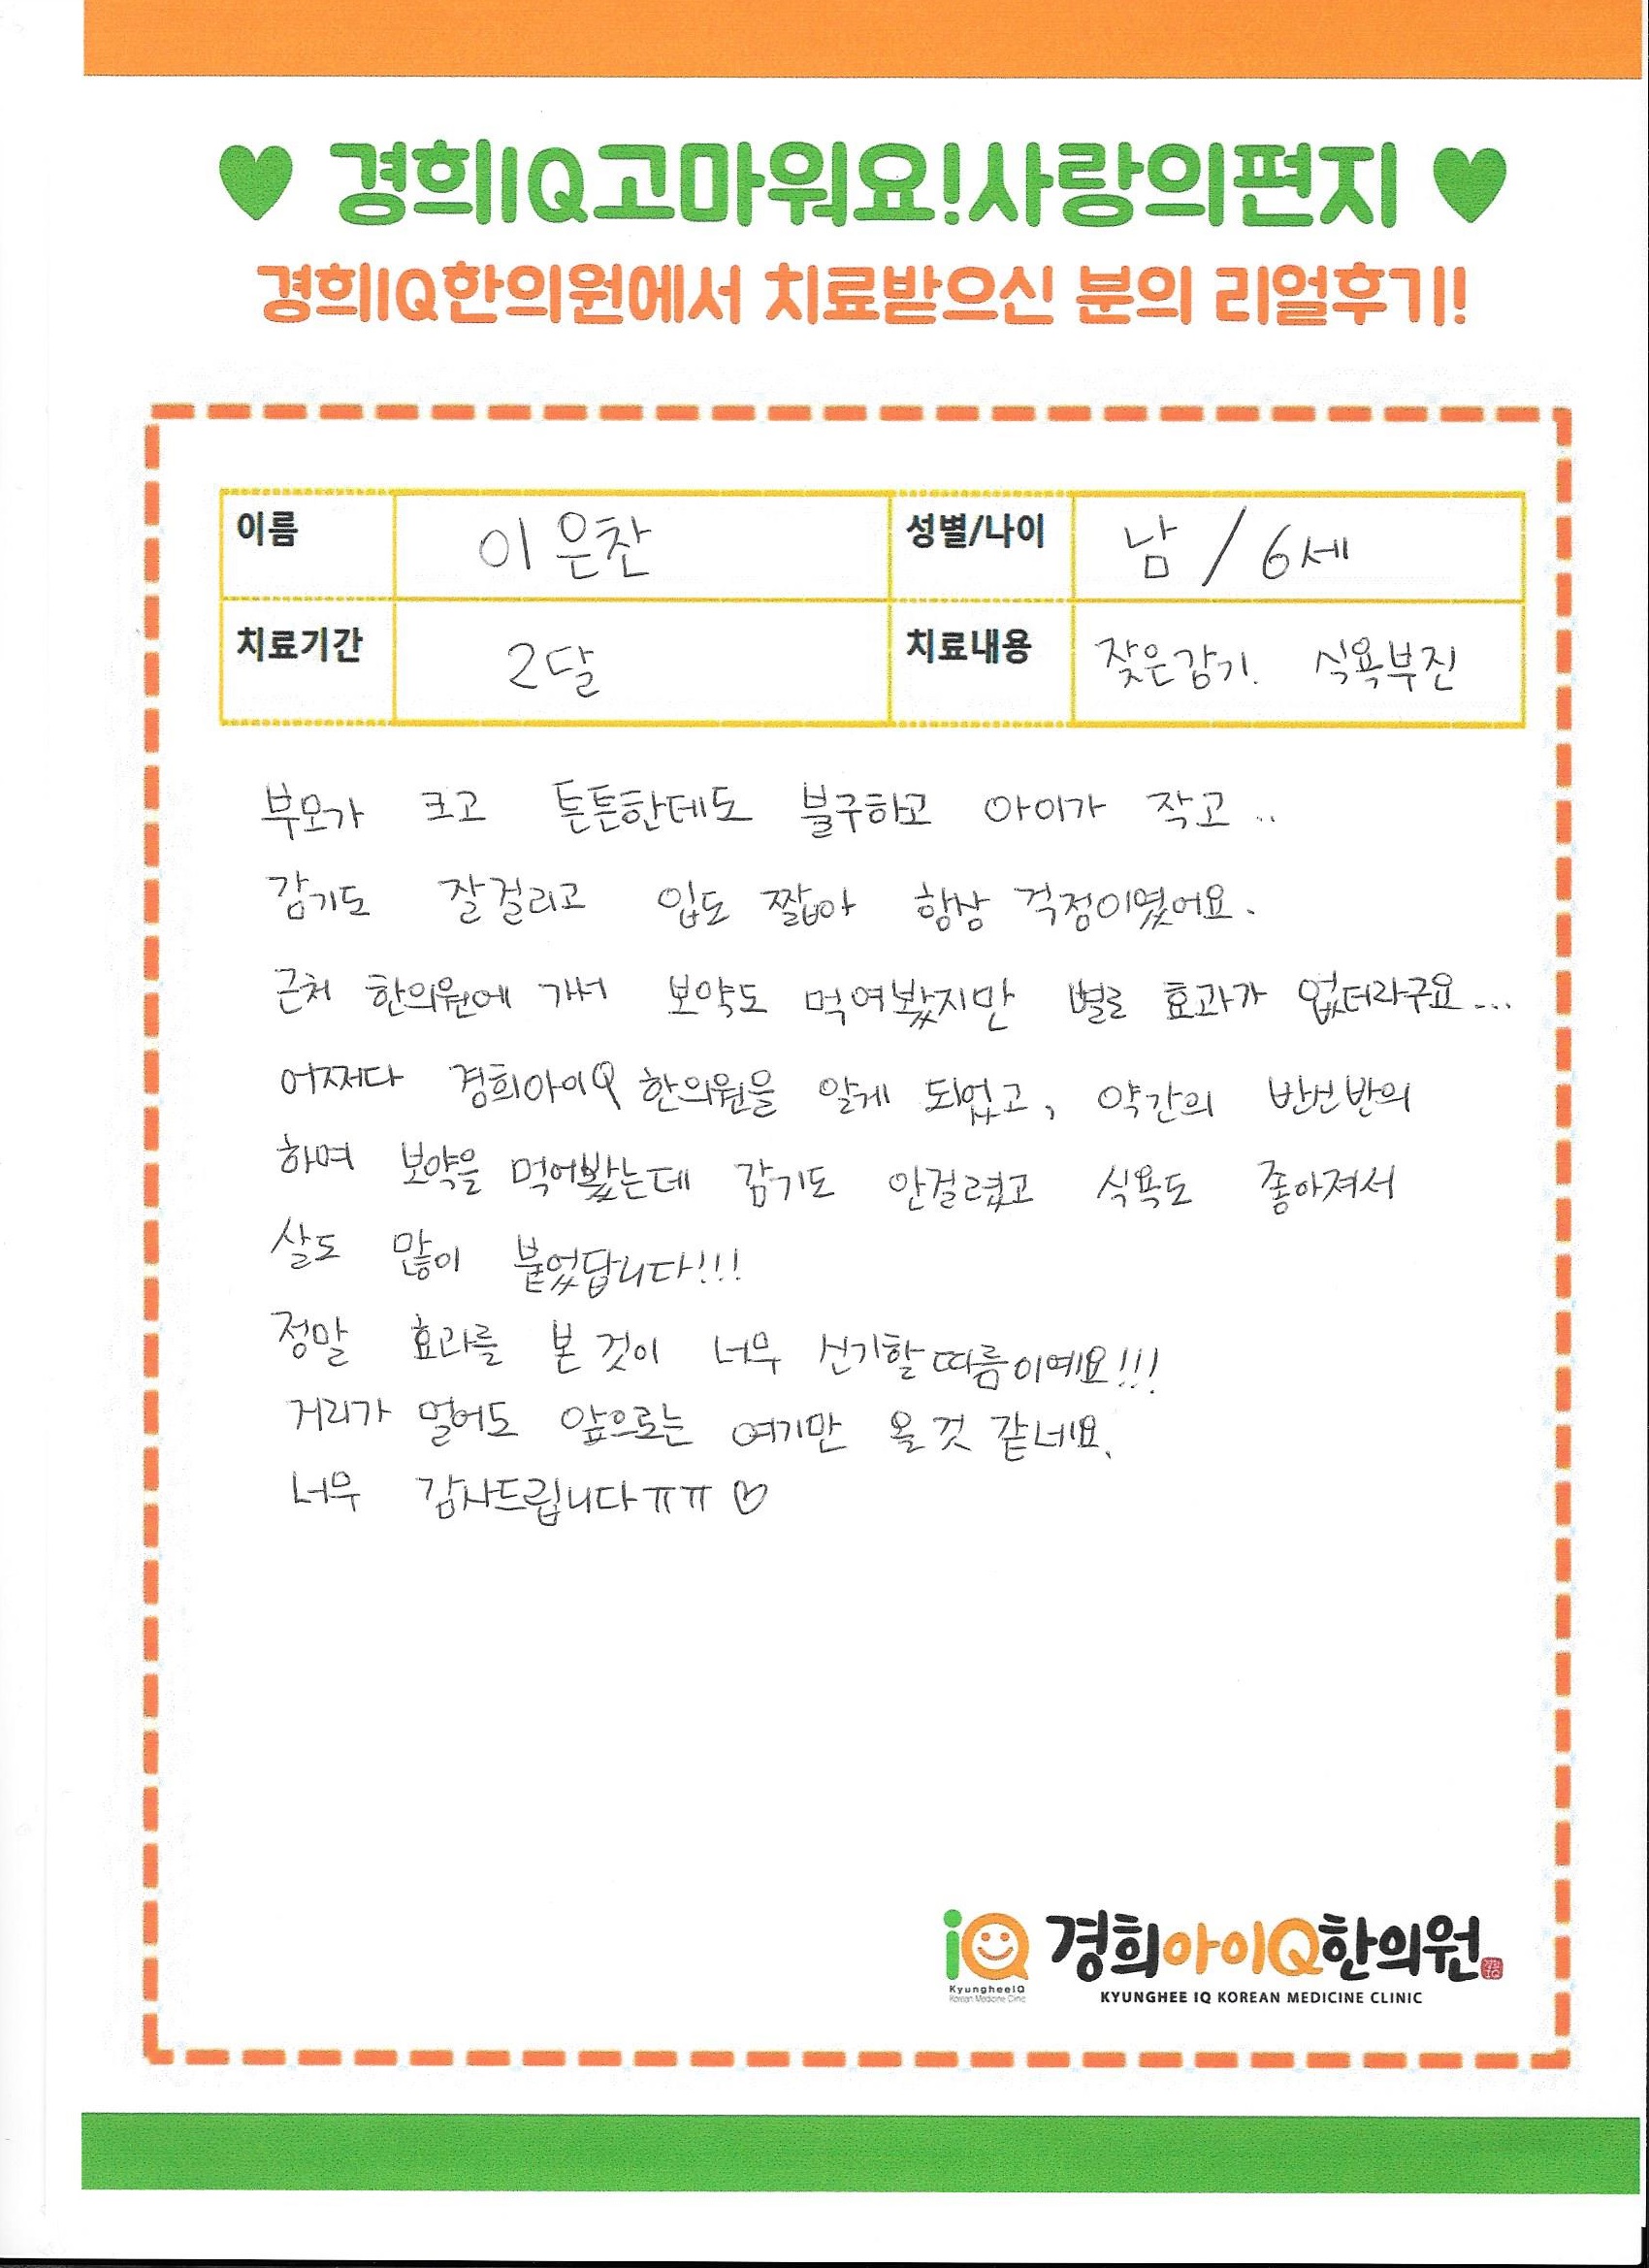 ♥ 경희IQ고마워요!사랑의편지 ♥
경희IQ한의원에서 치료받으신 분의 리얼후기!
이름 이은찬 성별/나이 남 / 6세
치료기간 2달 치료내용 잦은감기. 식욕부진
부모가 크고 튼튼한데도 불구하고 아이가 작고..
감기도 잘걸리고 입도 짧아 항상 걱정이였어요.
근처 한의원에 가서 보약도 먹여봤지만 별로 효과가 없더라구요...
어쩌다 경희아이Q 한의원을 알게 되었고, 약간의 반신반의
하며 보약을 먹어봤는데 감기도 안걸렸고 식욕도 좋아져서
살도 많이 붙었답니다!!!
정말 효과를 본 것이 너무 신기할 따름이예요!!!
거리가 멀어도 앞으로는 여기만 올 것 같네요.
너무 감사드립니다ㅠㅠ ♡
iQ 경희아이Q한의원
KyungheeIQ
Korean Medicine Clinic
KYUNGHEE IQ KOREAN MEDICINE CLINIC